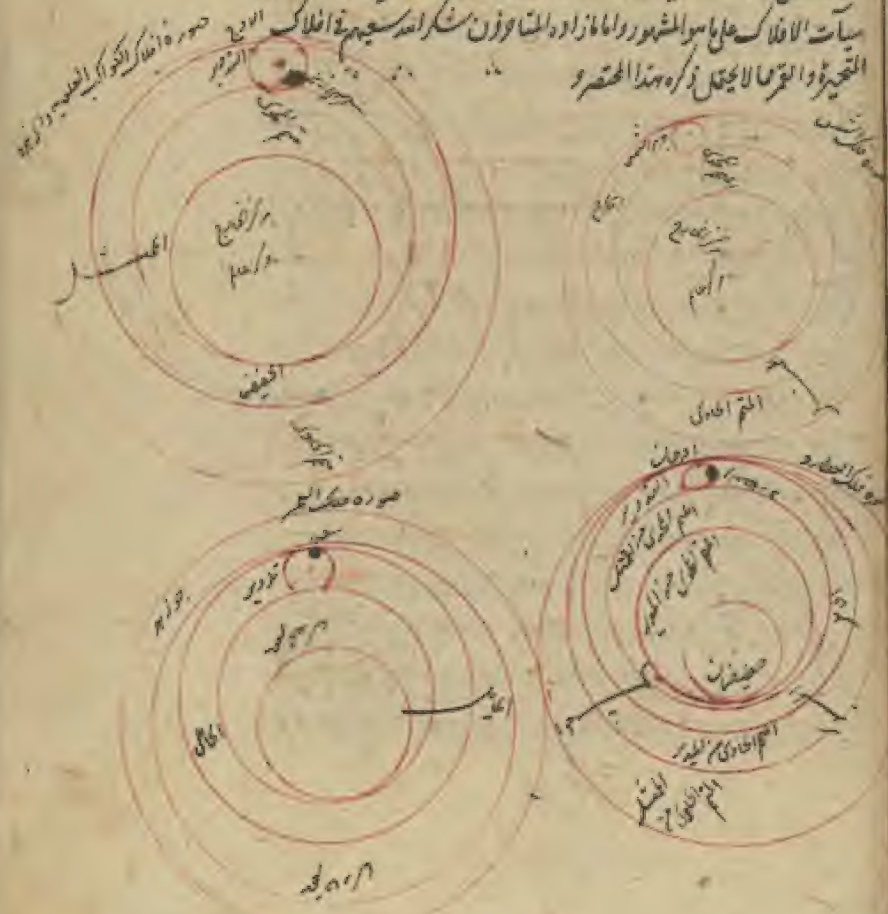 هيآت الافلاك على ما هو المشهور واما ما زاده المتأخرون شكر الله سعيهم في افلاك
المتحيرة والقمر مما لا يحتمل ذكره هذا المختصر و
صورة افلاك الكواكب العلوية والزهرة
الاوج
التدوير
مركز الخارج
مركز العالم
الممثل
الحضيض
صورة فلك الشمس
جرم الشمس
الخارج
مركز الخارج
مركز العالم
المتمم الحاوى
صورة فلك القمر
تدوير
جوزهر
الحامل
المايل
صورة فلك العطارد
اوجان
التدوير
المتمم المحوى من الممثل
المتمم المحوى من المدير
حضيضان
المتمم الحاوى من المدير
المتمم الحاوى من الممثل